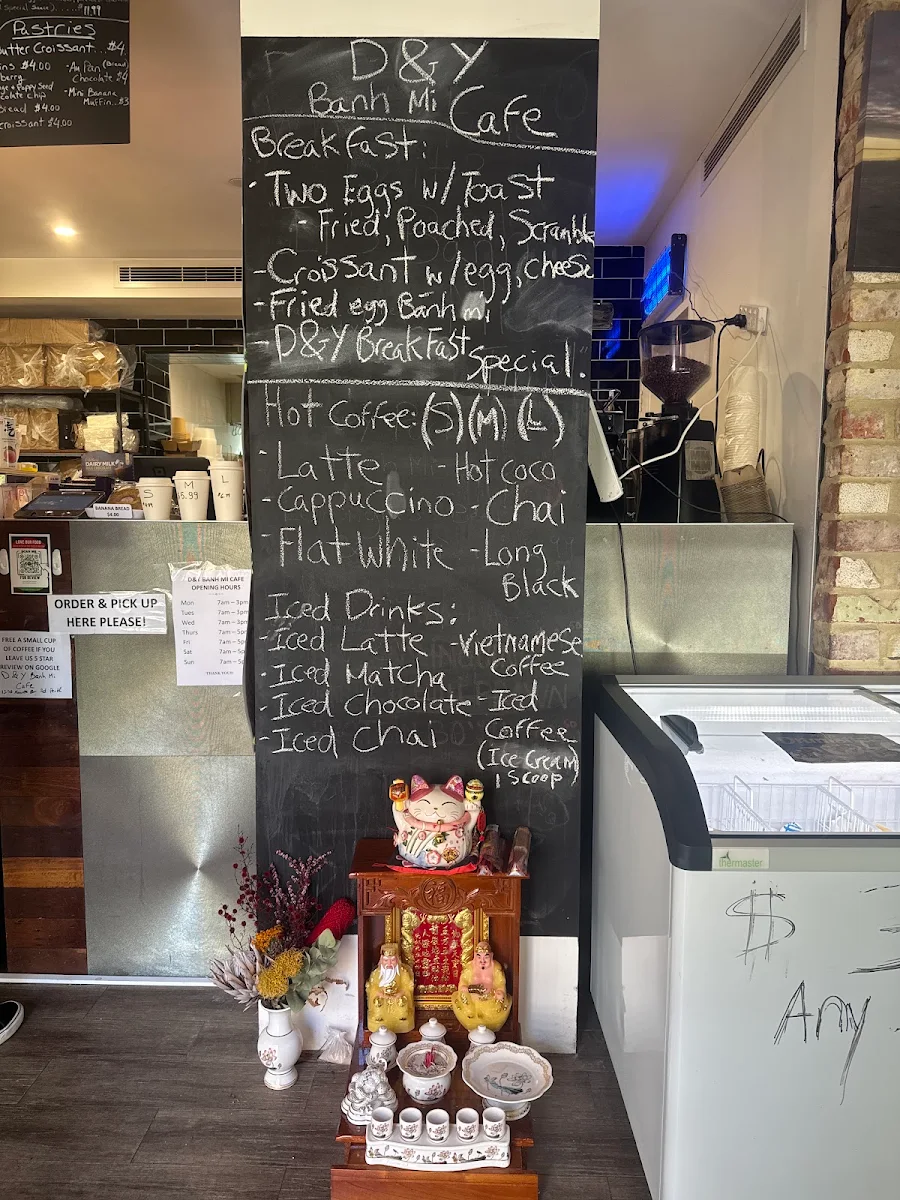 $11.99
Pastries
Butter Croissant...$4
$4.00
-Au Pan (Bread)
Chocolate $4
Poppy Seed
Chip
-Mini Banana
Muffin..$3
Bread $4.00
Croissant $4.00
D&Y
Banh Mi Cafe
Breakfast:
- Two Eggs w/Toast
- Fried, Poached, Scramble
-Croissant w/egg, cheese
-Fried egg Bánh mi
-D&Y Breakfast Special.
Hot Coffee: (S) (M) (L)
-Latte
-Hot coco
-Cappuccino
-Chai
-Flat White
-Long
Black
Iced Drinks:
-Iced Latte
-Vietnamese
Coffee
-Iced Matcha
-Iced Chocolate
-Iced
Coffee
(Ice Cream
1 Scoop)
-Iced Chai
DAIRY MILK
BANANA BREAD
$4.00
S
M
$5.99
L
LOVE OUR FOOD
FOR REVIEW
ORDER & PICK UP
HERE PLEASE!
D&Y BANH MI CAFE
OPENING HOURS
Mon 7am – 3pm
Tues 7am – 3p
Wed 7am – 3p
Thurs 7am – 3p
Fri 7am – 5p
Sat 7am – 5p
Sun 7am – 5p
THANK YOU
FREE A SMALL CUP
OF COFFEE IF YOU
LEAVE US 5 STAR
REVIEW ON GOOGLE
D&Y Banh Mi
Cafe
thermaster
$
Any
福